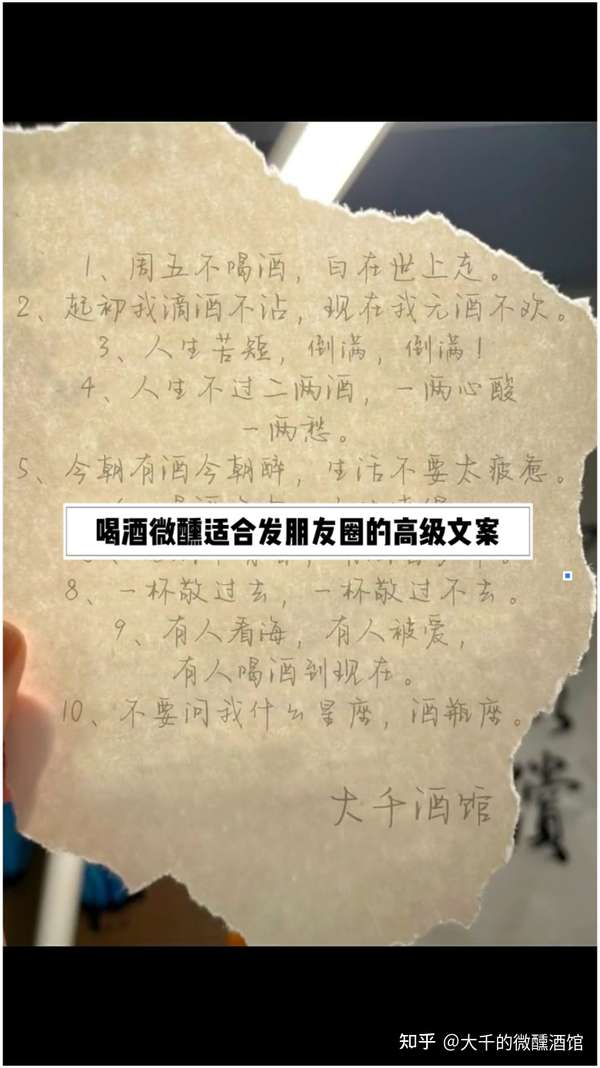 1、周五不喝酒，白在世上走。
2、起初我滴酒不沾，现在我无酒不欢。
3、人生苦短，倒满，倒满！
4、人生不过二两酒，一两心酸
一两愁。
5、今朝有酒今朝醉，生活不要太疲惫。
喝酒微醺适合发朋友圈的高级文案
8、一杯敬过去，一杯敬过不去。
9、有人看海，有人被爱，
有人喝酒到现在。
10、不要问我什么星座，酒瓶座。
大千酒馆
赏
知乎 @大千的微醺酒馆